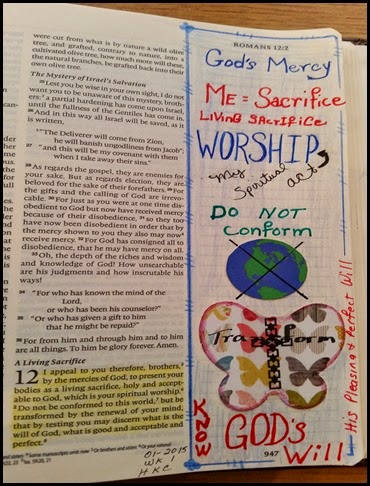 were cut from what is by nature a wild olive
tree, and grafted, contrary to nature, into a
cultivated olive tree, how much more will these,
the natural branches, be grafted back into their
own olive tree.
The Mystery of Israel's Salvation
25 Lest you be wise in your own sight, I do not
want you to be unaware of this mystery, broth-
ers: a partial hardening has come upon Israel,
until the fullness of the Gentiles has come in.
26 And in this way all Israel will be saved, as it
is written,
"The Deliverer will come from Zion,
he will banish ungodliness from Jacob";
27 "and this will be my covenant with them
when I take away their sins."
28 As regards the gospel, they are enemies for
your sake. But as regards election, they are
beloved for the sake of their forefathers. 29 For
the gifts and the calling of God are irrevo-
cable. 30 For just as you were at one time dis-
obedient to God but now have received mercy
because of their disobedience, 31 so they too
have now been disobedient in order that by
the mercy shown to you they also may now
receive mercy. 32 For God has consigned all to
disobedience, that he may have mercy on all.
33 Oh, the depth of the riches and wisdom
and knowledge of God! How unsearchable
are his judgments and how inscrutable his
ways!
34 "For who has known the mind of the
Lord,
or who has been his counselor?"
35 "Or who has given a gift to him
that he might be repaid?"
36 For from him and through him and to him
are all things. To him be glory forever. Amen.
A Living Sacrifice
12 I appeal to you therefore, brothers,
by the mercies of God, to present your
bodies as a living sacrifice, holy and accept-
able to God, which is your spiritual worship.
2 Do not be conformed to this world, but be
transformed by the renewal of your mind,
that by testing you may discern what is the
will of God, what is good and acceptable and
perfect.
01-2015
WK 1
HKC
ROMANS 12:2
God's Mercy
ME = Sacrifice
LIVING SACRIFICE
WORSHIP
my Spiritual act
DO NOT
Conform
Transform
KNOW
GOD's
Will
His Pleasing & Perfect Will
947